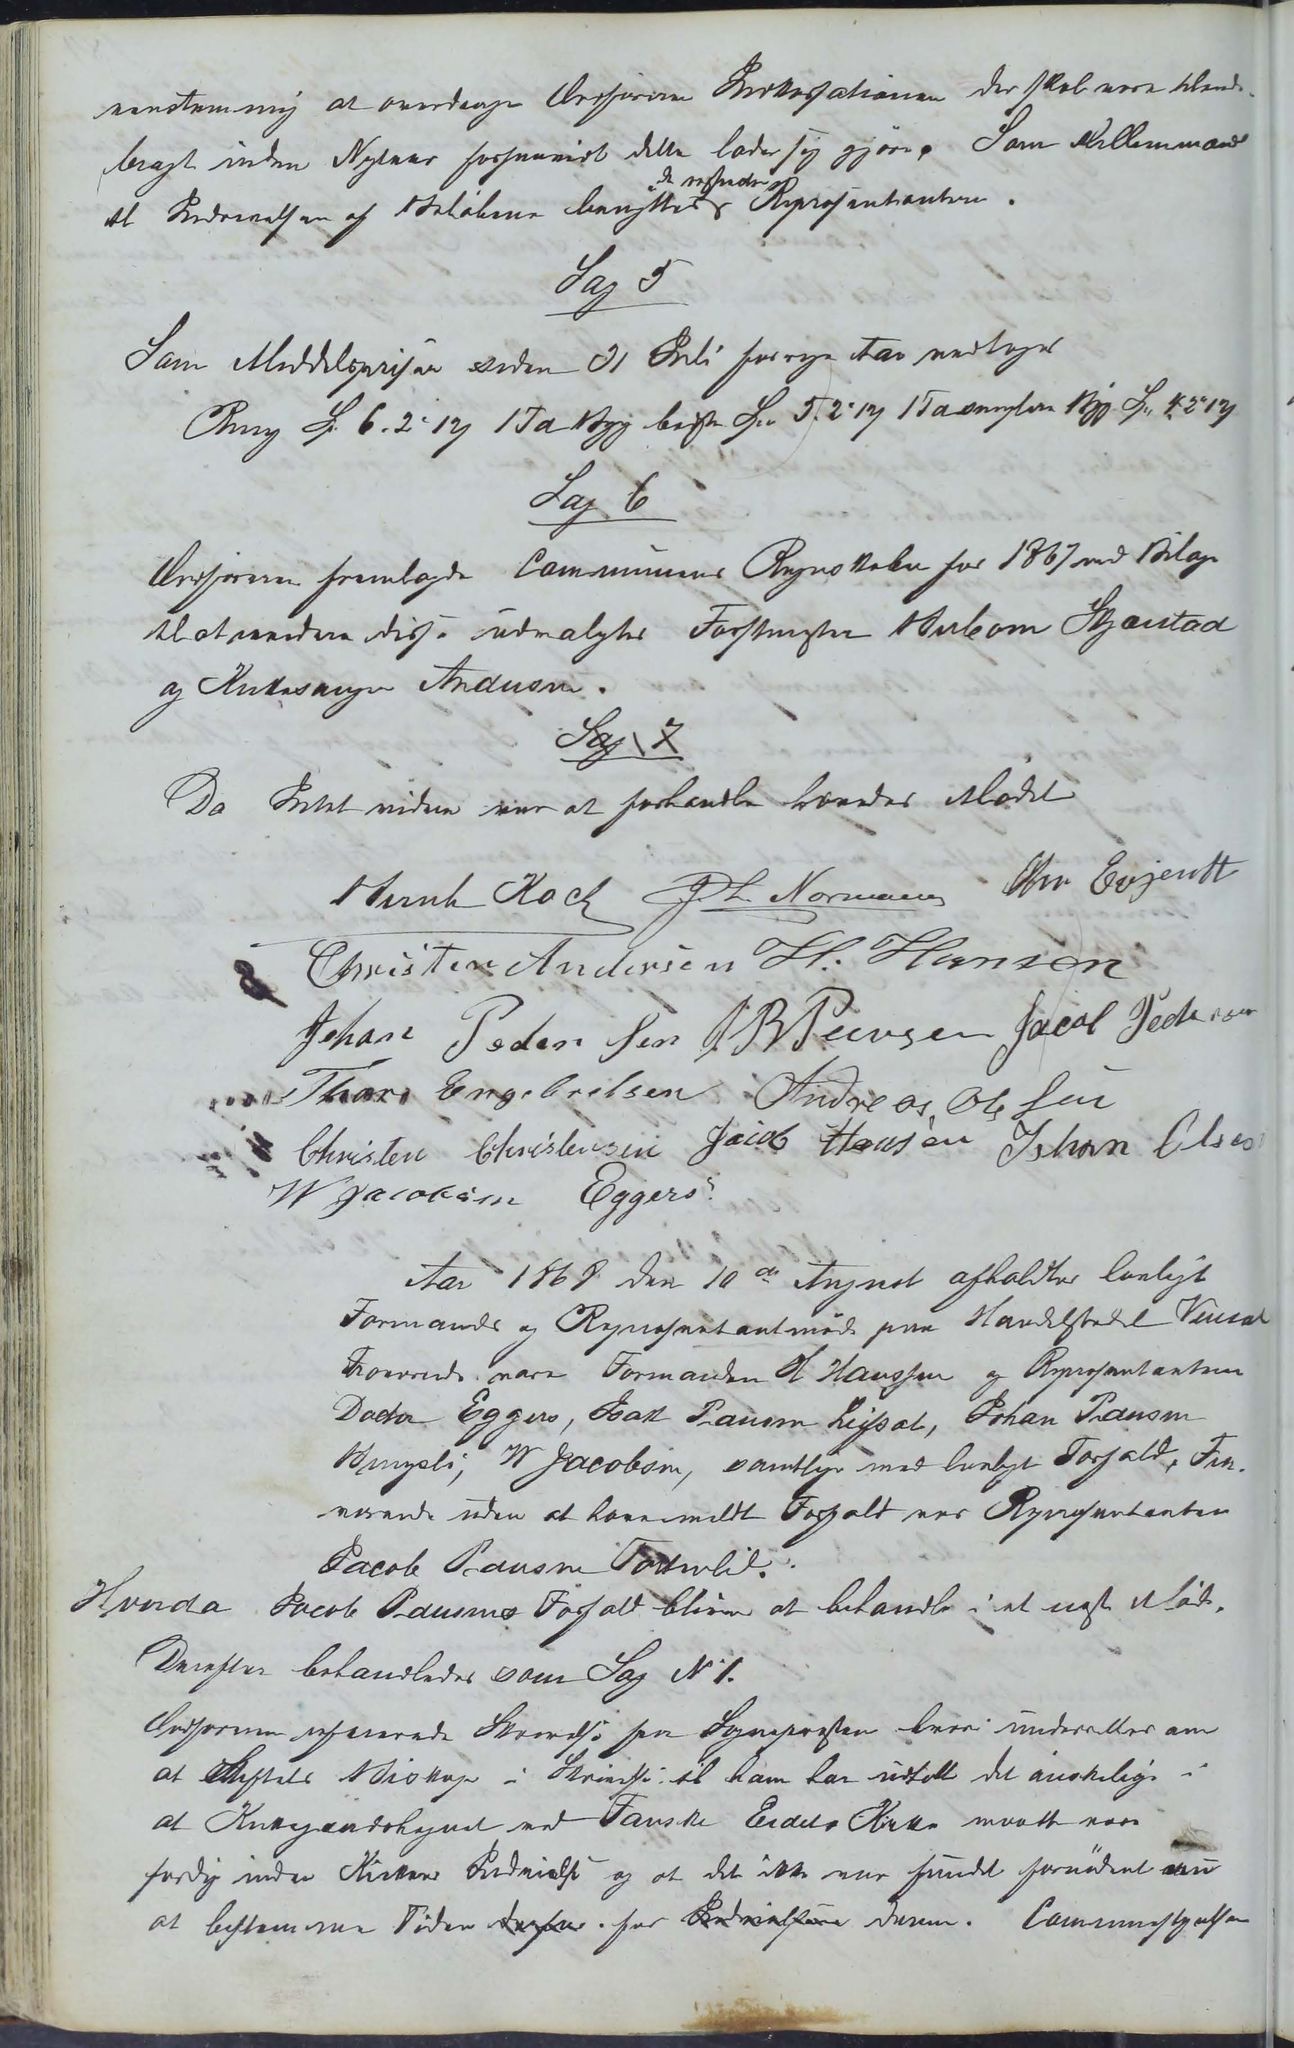 eenstemmig at overdrage Ordføreren Inkassationen der skal være tilende-
bragt inden Nytaar forsaavidt dette lader sig gjøre. Som Mellemmænd
til Inddrivelsen af Beløbene benyttes de respective Repræsentantere.
Sag 5
Som Middelpriser siden 31 Juli forrige Aar vedtages
Rug 6. 2. 12 1 Td Byg bedste 5. 2. 12 1 Td simplere Byg 4. 2. 12
Sag 6
Ordføreren fremlagde Communens Regnskaber for 1867 med Bilage
til at revidere disse udvalgtes Forstmester Skjæstad
og Kirkesanger Andersen.
Sag 7
Da Intet videre var at forhandle hævedes Mødet
Bernh Koch J L Normann Chr Evjenth
Christen Andersen H. Hansen
Johan Peder sen J B Pevsen Jacob Pedersen
Thore Engebretsen Andreas Ole sen
Christen Christensen Jacob Hansen Johan Olsen
W Jacobsen Eggers
Aar 1868 den 10de August afholdtes lovligt
Formands og Repræsentantmøde paa Handelsstedet Venset
Fraværende vare Formanden H Hanssen og Repræsentanterne
Doctor Eggers, Isak Paulsen Leifset, Johan Paulsen
W Jacobsen, samtlige med lovligt Forfald, Fra-
værende uden at have meldt Forfald var Repræsentanten
Jacob Paulsen
Hvorda Jacob Paulsens Forfald bliver at behandle i et næste Møde.
Derefter behandledes som Sag N 1.
Ordføreren refererede Skrivelse fra Sognepresten hvori underretter om
at Stiftets Biskop i Skrivelse til ham har udtalt det ønskelige i
at Kirkegaardshegnet ved Fauske Eidets Kirke maatte være
færdig inden Kirkens Indvielse og at det ikke var fundet fornødent nu
at bestemme Tiden for Indvielsen denne. Communestyrelsen